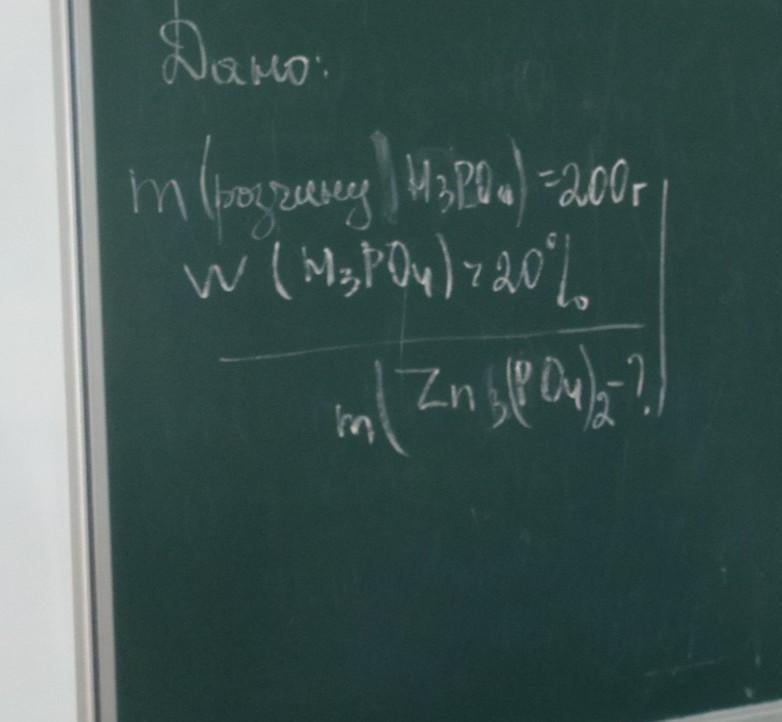 Дано:
m(розчину) H₃PO₄) = 200г
W (H₃PO₄) = 20%
m(Zn₃(PO₄)₂ - ?